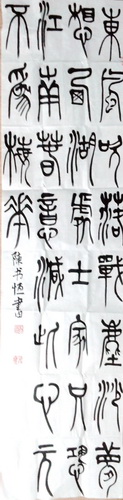 東吹落戰塵沙夢
想西湖處士家只恐
江南春意減此心元
不為梅花
陳书恒書